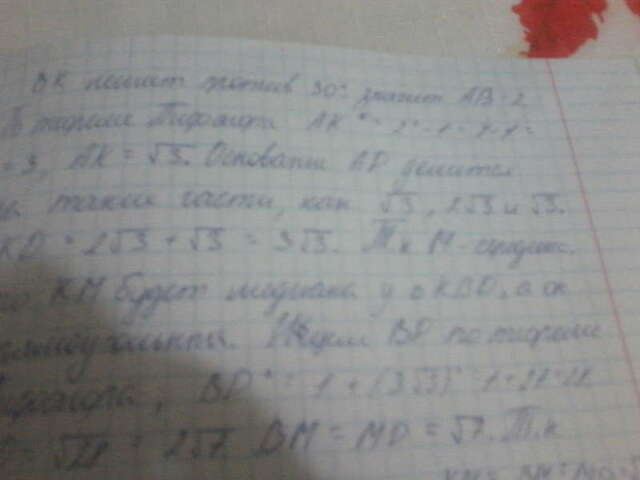 ВК лежит против 30° значит АВ=2
По теореме Пифагора АК² = 2² - 1 = 4-1 =
= 3, АК = √3. Основание АД делится
на такие части, как √3, 2√3 и √3.
КD = 2√3 + √3 = 3√3. Т.к М - средина
то КМ будет медиана у △ КВD, а он
прямоугольный. Ищем ВD по теореме
Пифагора, ВD² = 1 + (3√3)² = 1 + 27 = 28
= √28 = 2√7. ВМ = МD = √7. Т.к
КМ = ВМ = МD = √